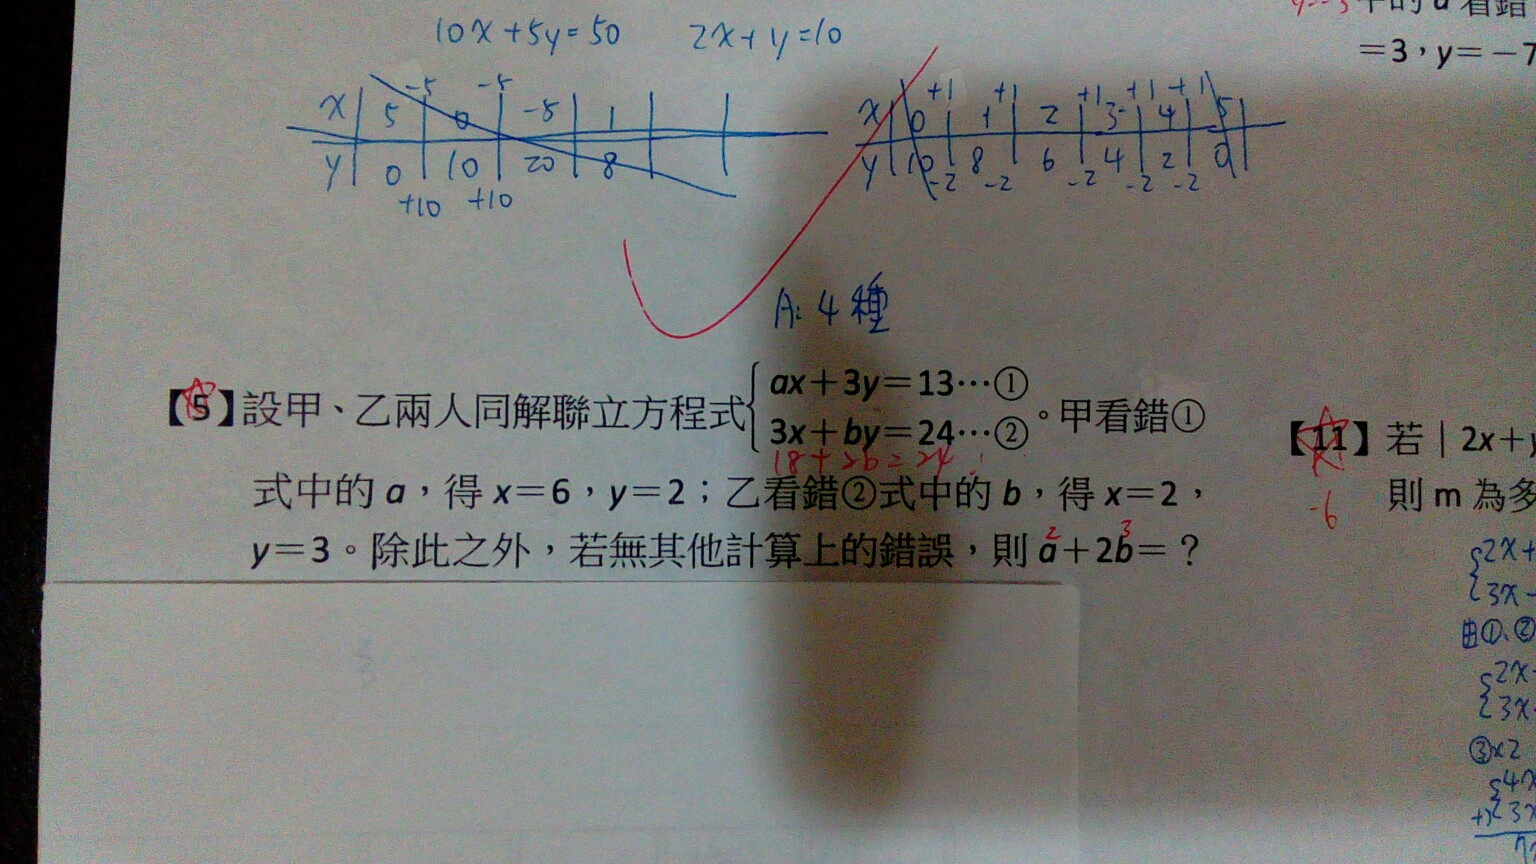 10x+5y=50 2x+y=10
-5 -5
x 5 0 -8 1
y 0 10 20 8
+10 +10
+1 +1 +1 +1 +1
x 0 1 2 3 4 5
y 10 8 6 4 2 0
-2 -2 -2 -2 -2
A: 4種
【5】設甲、乙兩人同解聯立方程式{ax+3y=13…①
3x+by=24…② 。甲看錯①
18+2b=24
式中的 a,得 x=6,y=2;乙看錯②式中的 b,得 x=2,
2 3
y=3。除此之外,若無其他計算上的錯誤,則 a+2b=?
中的 a 看錯
=3,y=-7
【11】若 | 2x+y
則 m 為多
-6
2x+
3x-
由①、②
2x-
3x-
③x2
4x
3x